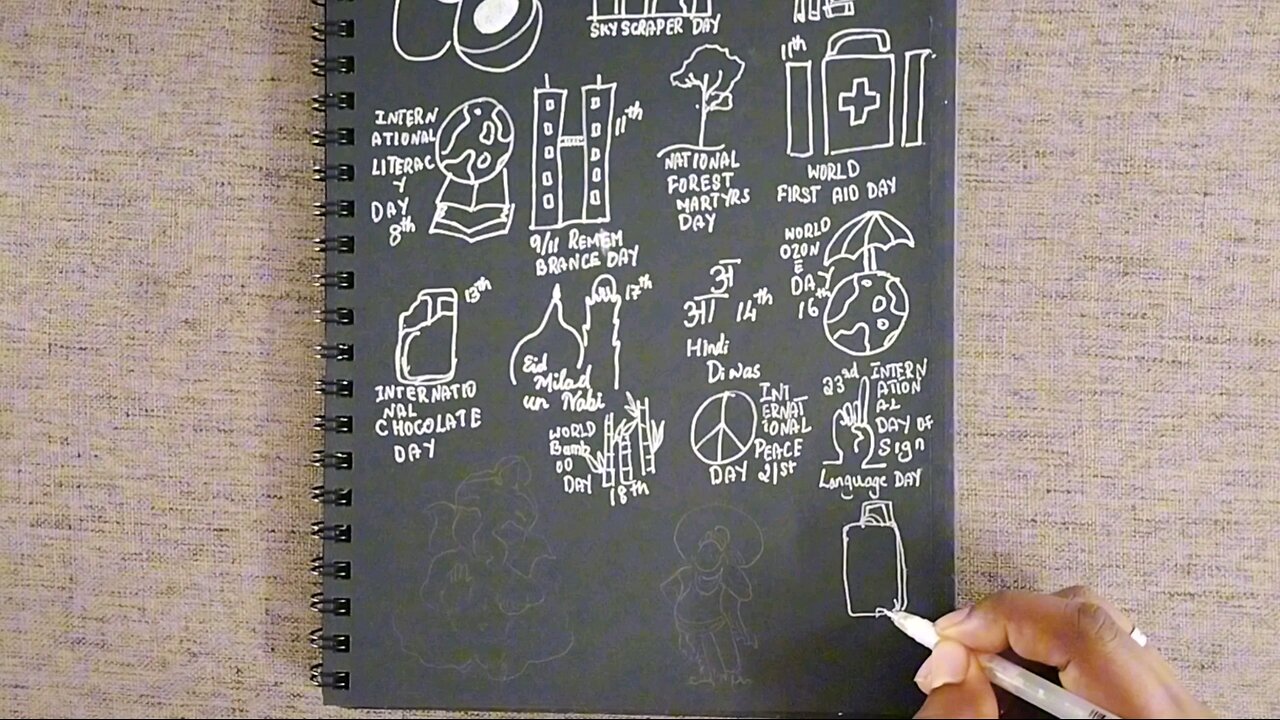 SKYSCRAPER DAY
INTERN
ATIONAL
LITERAC
Y
DAY
8th
11th
9/11 REMEM
BRANCE DAY
NATIONAL
FOREST
MARTYRS
DAY
11th
WORLD
FIRST AID DAY
WORLD
OZON
E
DAY
16th
13th
INTERNATIO
NAL
CHOCOLATE
DAY
17th
Eid
Milad
un Nabi
अ
आ 14th
Hindi
Diwas
WORLD
Bamb
oo
DAY
18th
INT
ERNAT
IONAL
PEACE
DAY 21st
23rd
INTERN
ATION
AL
DAY OF
Sign
Language DAY